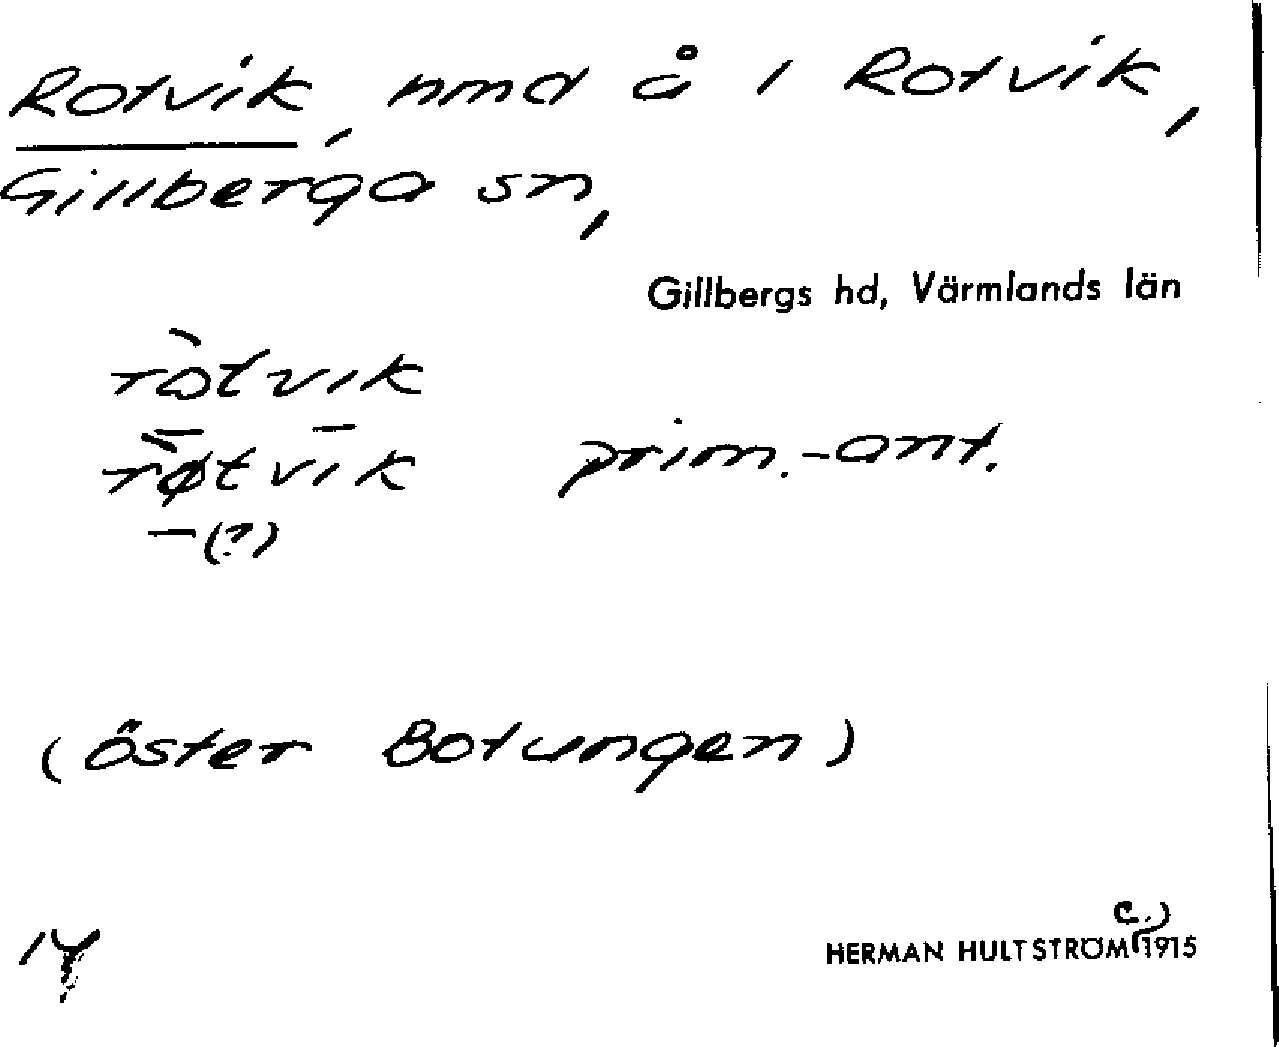 Rotvik, nmd å i Rotvik,
Gillberga sn,
Gillbergs hd, Värmlands län
ròtvik
rø̀tvīk prim.-ant.
–(?)
(öster Botungen)
HERMAN HULTSTRÖM (c.) 1915